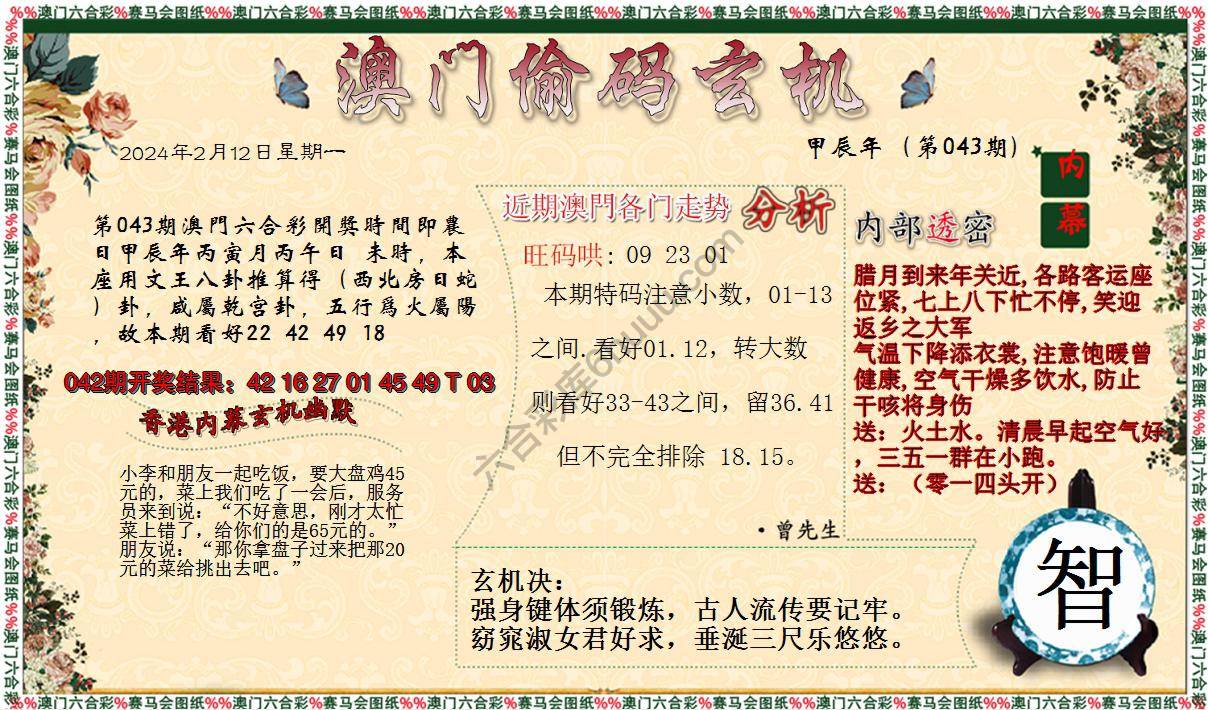 %%澳门六合彩%赛马会图纸%%澳门六合彩%赛马会图纸%%澳门六合彩%赛马会图纸%%澳门六合彩%赛马会图纸%%澳门六合彩%赛马会图纸%%澳门六合彩%赛马会图纸%%
澳门偷码玄机
2024年2月12日星期一
甲辰年（第043期）
内
幕
第043期澳門六合彩開獎時間即農
日甲辰年丙寅月丙午日 未時，本
座用文王八卦推算得（西北房日蛇
）卦，咸屬乾宫卦，五行爲火屬陽
，故本期看好22 42 49 18
042期开奖结果：42 16 27 01 45 49 T 03
香港内幕玄机幽默
小李和朋友一起吃饭，要大盘鸡45
元的，菜上我们吃了一会后，服务
员来到说：“不好意思，刚才太忙
菜上错了，给你们的是65元的。”
朋友说：“那你拿盘子过来把那20
元的菜给挑出去吧。”
近期澳門各门走势 分析
旺码哄: 09 23 01
本期特码注意小数，01-13
之间.看好01.12，转大数
则看好33-43之间，留36.41
但不完全排除 18.15。
·曾先生
内部透密
腊月到来年关近,各路客运座
位紧,七上八下忙不停,笑迎
返乡之大军
气温下降添衣裳,注意饱暖曾
健康,空气干燥多饮水,防止
干咳将身伤
送：火土水。清晨早起空气好
，三五一群在小跑。
送：（零一四头开）
玄机决：
强身键体须锻炼，古人流传要记牢。
窈窕淑女君好求，垂涎三尺乐悠悠。
智
六合彩库6huuu.com
%%澳门六合彩%赛马会图纸%%澳门六合彩%赛马会图纸%%澳门六合彩%赛马会图纸%%澳门六合彩%赛马会图纸%%澳门六合彩%赛马会图纸%%澳门六合彩%赛马会图纸%%